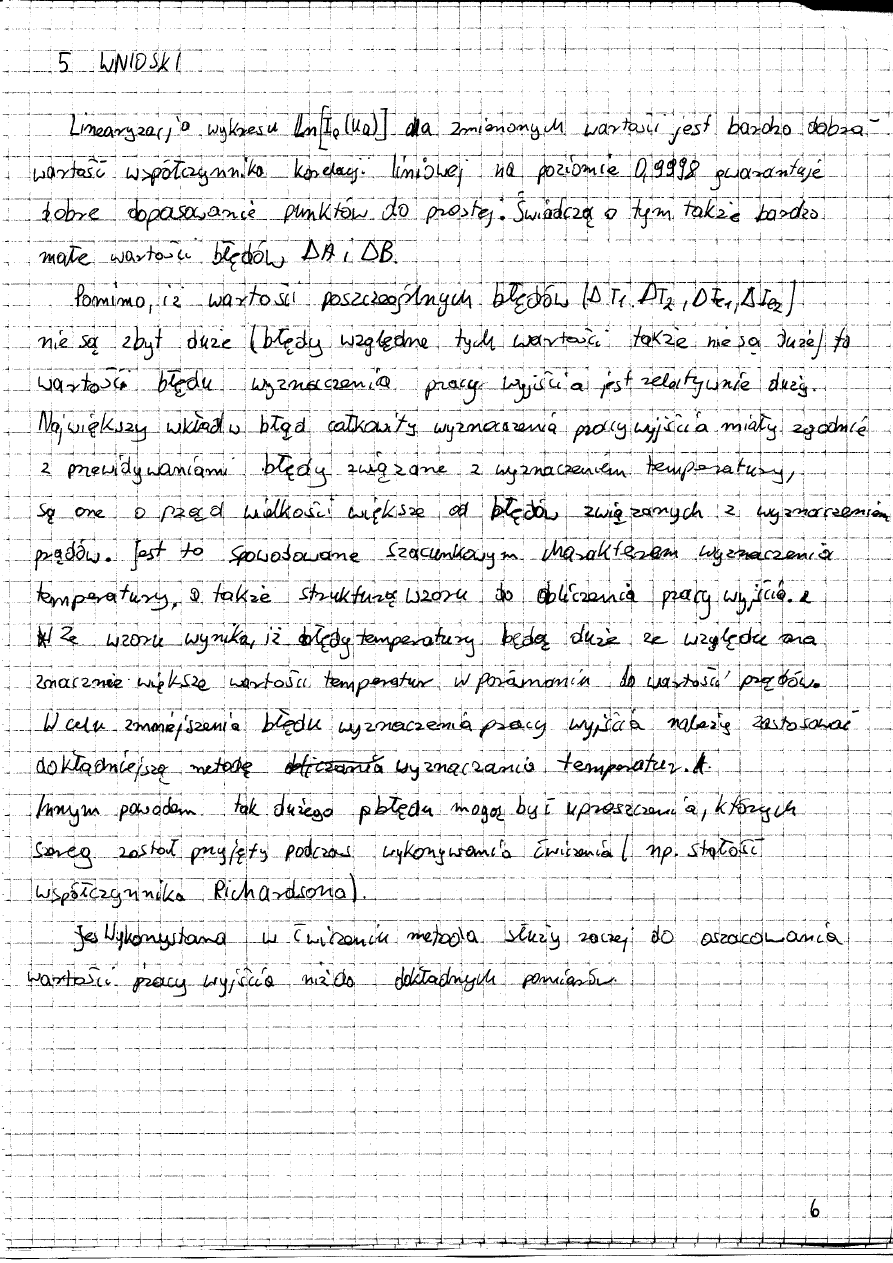 5 WNIOSKI
Linearyzacja wykresu ln[Ia(Ua)] dla zmienonych wartości jest bardzo dobra
wartość współczynnika korelacji liniowej na poziomie 0,9998 gwarantuje
dobre dopasowanie punktów do prostej. Świadczą o tym także bardzo
małe wartości błędów ΔA i ΔB.
Pomimo, iż wartości poszczególnych błędów (ΔT1, ΔT2, ΔIe1, ΔIe2)
nie są zbyt duże (błędy względne tych wartości także nie są duże) to
wartość błędu wyznaczenia pracy wyjścia jest relatywnie duży.
Największy wkład w błąd całkowity wyznaczenia pracy wyjścia miały zgodnie
z przewidywaniami błędy związane z wyznaczeniem temperatury,
są one o rząd wielkości większe od błędów związanych z wyznaczeniem
prądów. Jest to spowodowane szacunkowym charakterem wyznaczenia
temperatury, a także strukturą wzoru do obliczenia pracy wyjścia.
Ze wzoru wynika, iż błędy temperatury będą duże ze względu na
znacznie większe wartości temperatur w porównaniu do wartości prądów.
W celu zmniejszenia błędu wyznaczenia pracy wyjścia należy zastosować
dokładniejszą metodę obliczania wyznaczania temperatur.
Innym powodem tak dużego błędu mogą być uproszczenia, których
szereg został przyjęty podczas wykonywania ćwiczenia (np. stałość
współczynnika Richardsona).
Jes Wykorzystana w ćwiczeniu metoda służy raczej do oszacowania
wartości pracy wyjścia niż do dokładnych pomiarów.
6